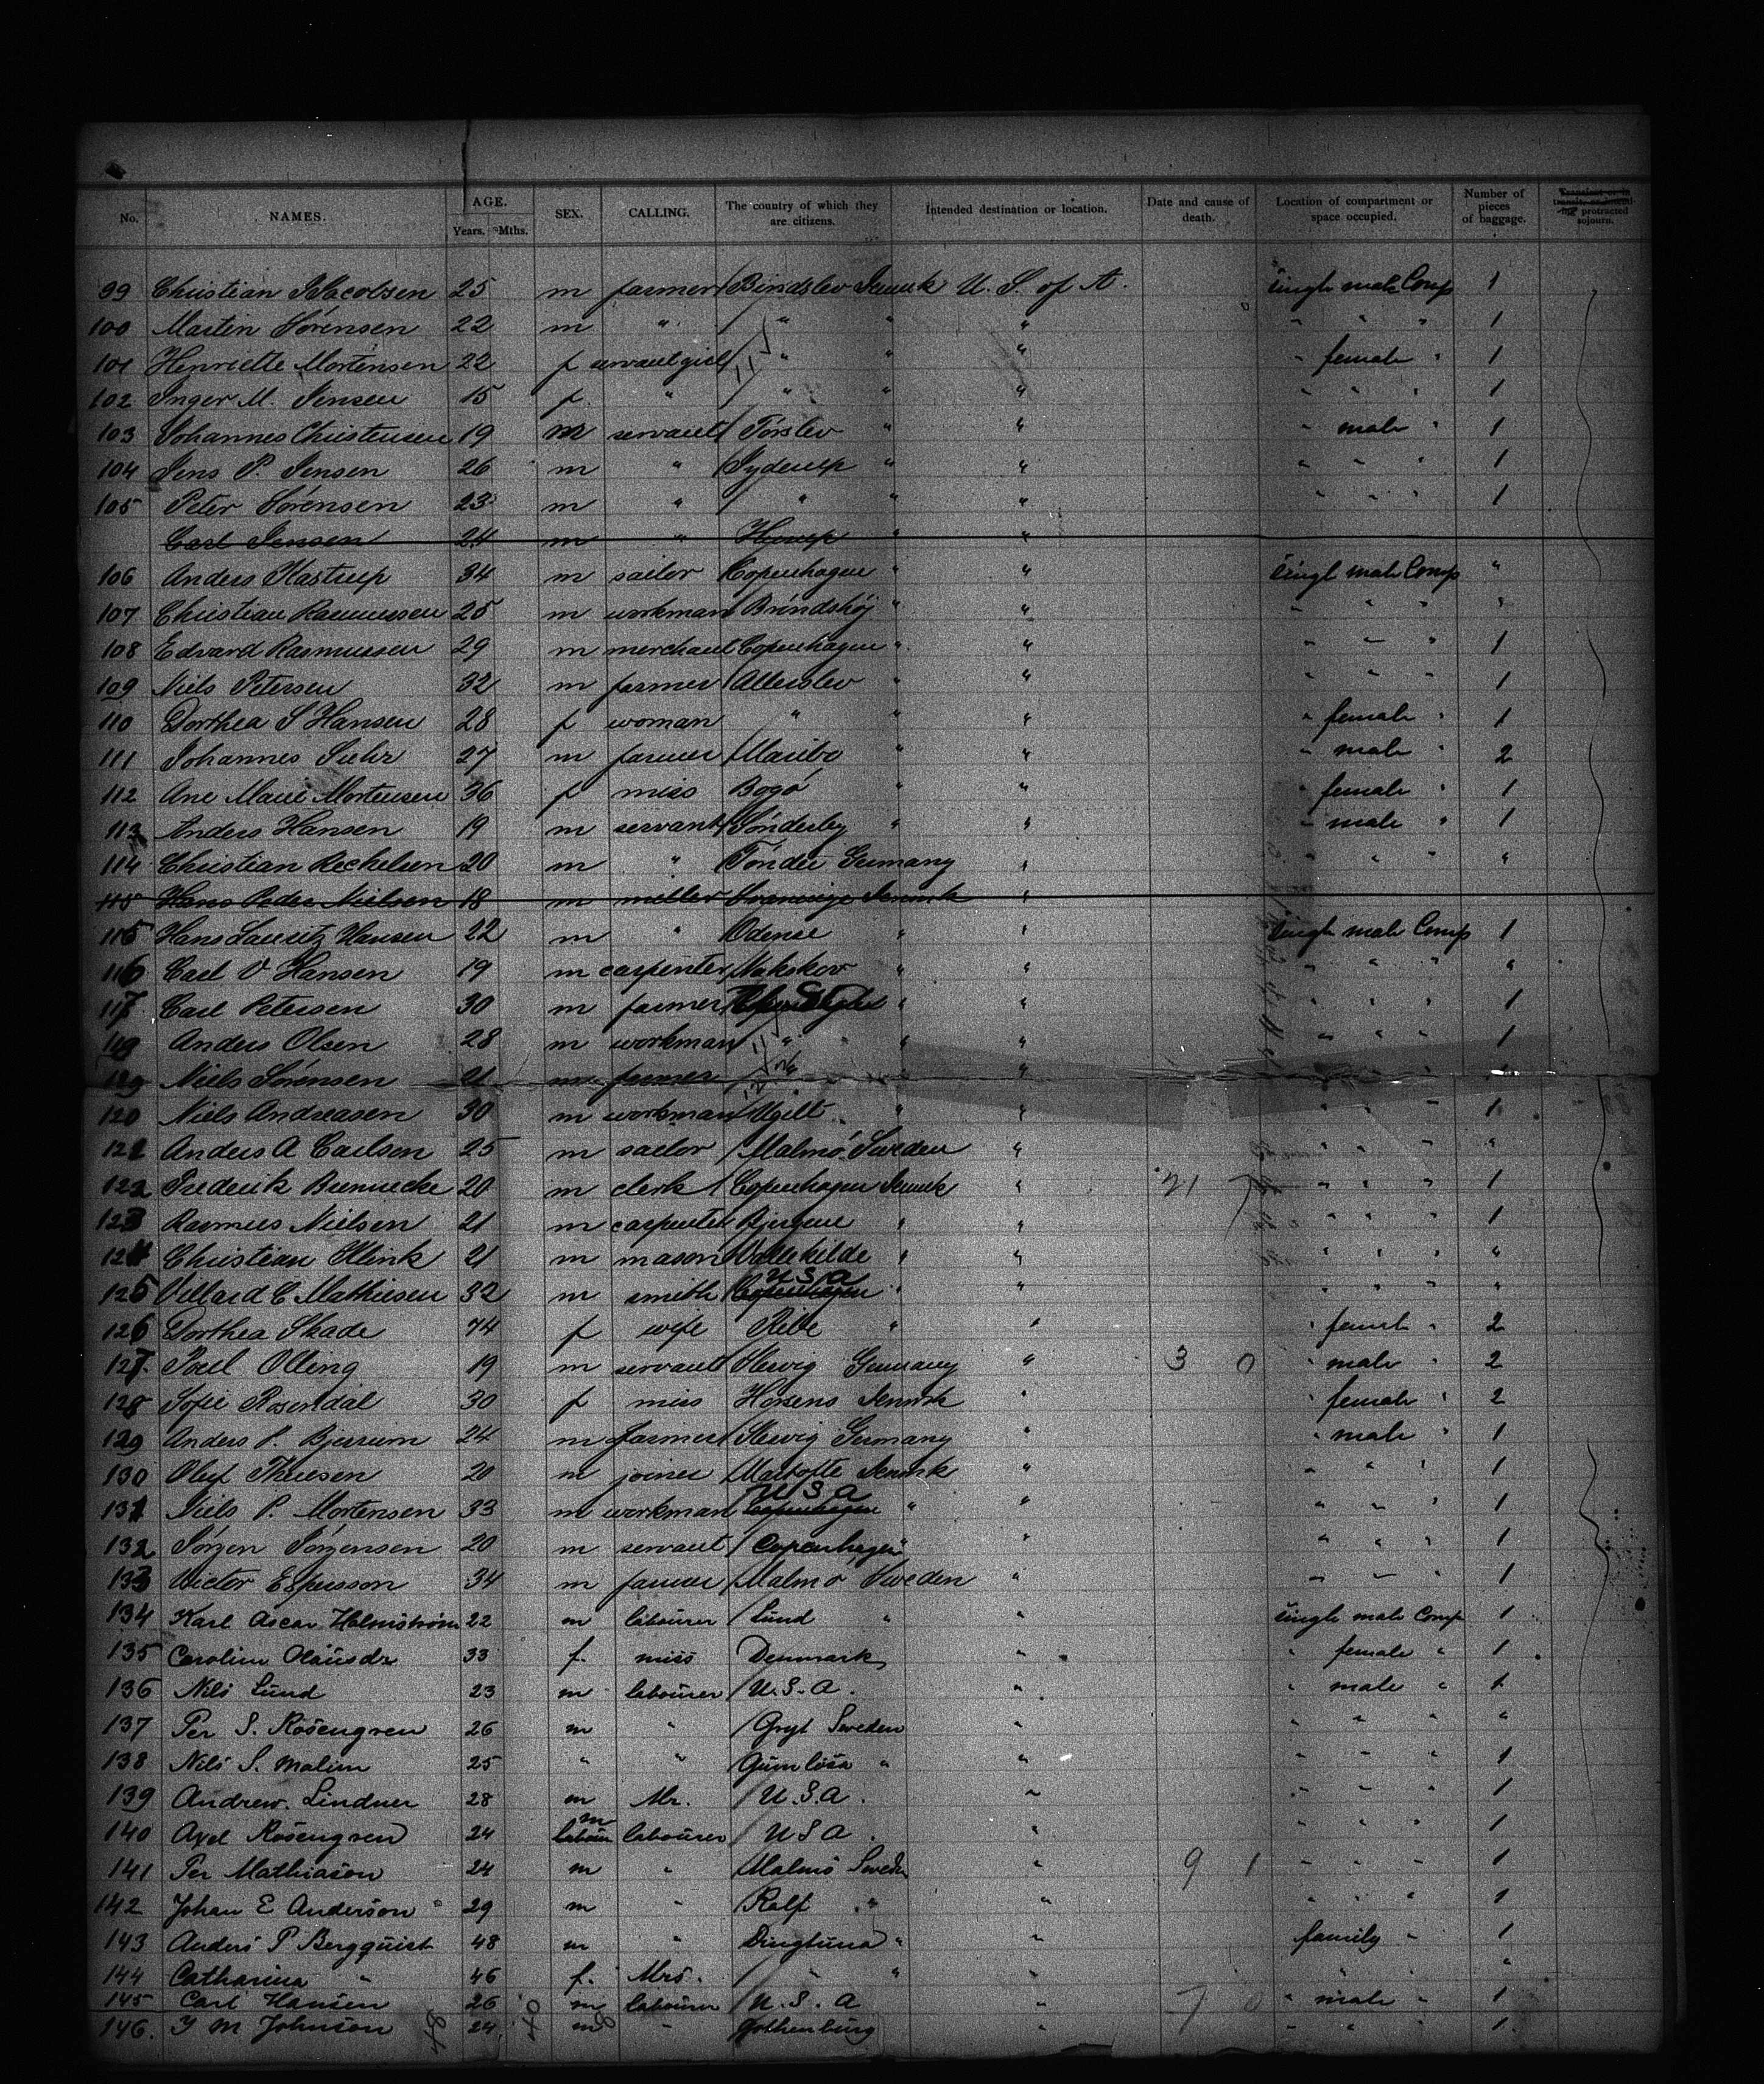 No. NAMES. AGE. Years. Mths. SEX. CALLING. The country of which they are citizens. Intended destination or location. Date and cause of death. Location of compartment or space occupied. Number of pieces of baggage. protracted sojourn.
99 Christian Jacobsen 25 m farmer Bindslev Denmk U. S. of A. single male Comp 1
100 Martin Sørensen 22 m " " " " " " " 1
101 Henriette Mortensen 22 f servant girl " " " " female " 1
102 Inger M. Jensen 15 f. " " " " " " " 1
103 Johannes Christensen 19 m servant Tørslev " " " male " 1
104 Jens P. Jensen 26 m " Syderup " " " " " 1
105 Peter Sørensen 23 m " " " " " " " 1
Carl Jensen 24 m " " "
106 Anders Kastrup 34 m sailor Copenhagen " " singl male Comp "
107 Christian Rasmussen 25 m workman Brøndshøj " " " " " "
108 Edvard Rasmussen 29 m merchant Copenhagen " " " " " 1
109 Niels Petersen 32 m farmer Allerslev " " " " " 1
110 Dorthea S Hansen 28 f woman " " " " female " 1
111 Johannes Suhr 27 m farmer Maribo " " " male " 2
112 Ane Marie Mortensen 36 f miss Bogø " " " female " 1
113 Anders Hansen 19 m servant Sønderby " " " male " 1
114 Christian Reckelsen 20 m " Tønder Germany " " " " "
115 Hans Peder Nielsen 18 m miller Svaninge Denmk "
115 Hans Lauritz Hansen 22 m " Odense " " single male Comp 1
116 Carl V Hansen 19 m carpenter Nakskov " " " " " "
117 Carl Petersen 30 m farmer USA " " " " " 1
119 Anders Olsen 28 m workman " " " " " " 1
Niels Sørensen 21 m farmer "
120 Niels Andreasen 30 m workman Ugilt " " " " " 1
121 Anders A Carlson 25 m sailor Malmø Sweden " " " " "
122 Frederik Bunnecke 20 m clerk Copenhagen Denmk " 21 7 " " " 1
123 Rasmus Nielsen 21 m carpenter " " " " " 1
124 Christian Klink 21 m mason Vallekilde " " " " " "
125 Villard C Mathiesen 32 m smith Copenhagen U S A " " " " " "
126 Dorthea Skade 74 f wife Ribe " " " female " 2
127 Poul Olling 19 m servant Slesvig Germany " 3 0 " male " 2
128 Sofie Rosendal 30 f miss Horsens Denmrk " " female " 2
129 Anders P. Bjerrum 24 m farmer Slesvig Germany " " male " 1
130 Oluf Thuesen 20 m joiner Martofte Denmrk " " " " 1
131 Niels P. Mortensen 33 m workman Copenhagen U S A " " " " " 1
132 Jørgen Jørgensen 20 m servant Copenhagen " " " " " 1
133 Victor Espersson 34 m farmer Malmø Sweden " " " " 1
134 Karl Oscar Holmström 22 m labourer Lund " " single male Comp 1
135 Carolina Olausdr 33 f. miss Denmark " " female " 1
136 Nils Lund 23 m labourer U. S. A. " " male " 1
137 Per S. Rosengren 26 m " Gryt Sweden " " " " "
138 Nils S. Malim 25 " " Gumlösa " " " " " 1
139 Andrew. Lindner 28 m Mr. U. S. A. " " " " 1
140 Axel Rosengren 24 m labourer U S A. " " " " 1
141 Per Mathiason 24 m " Malmö Sweden " 9 1 " " " 1
142 Johan E Anderson 29 m " Ralf " " " " " 1
143 Anders P Bergquist 48 m " Dingtuna " " family " 1
144 Catharina " 46 f. Mrs. " " " " " "
145 Carl Hansen 26 m labourer U. S. A " 7 0 " male " 1
146. J M Johnson 24 m " Gothenburg " " " " 1.